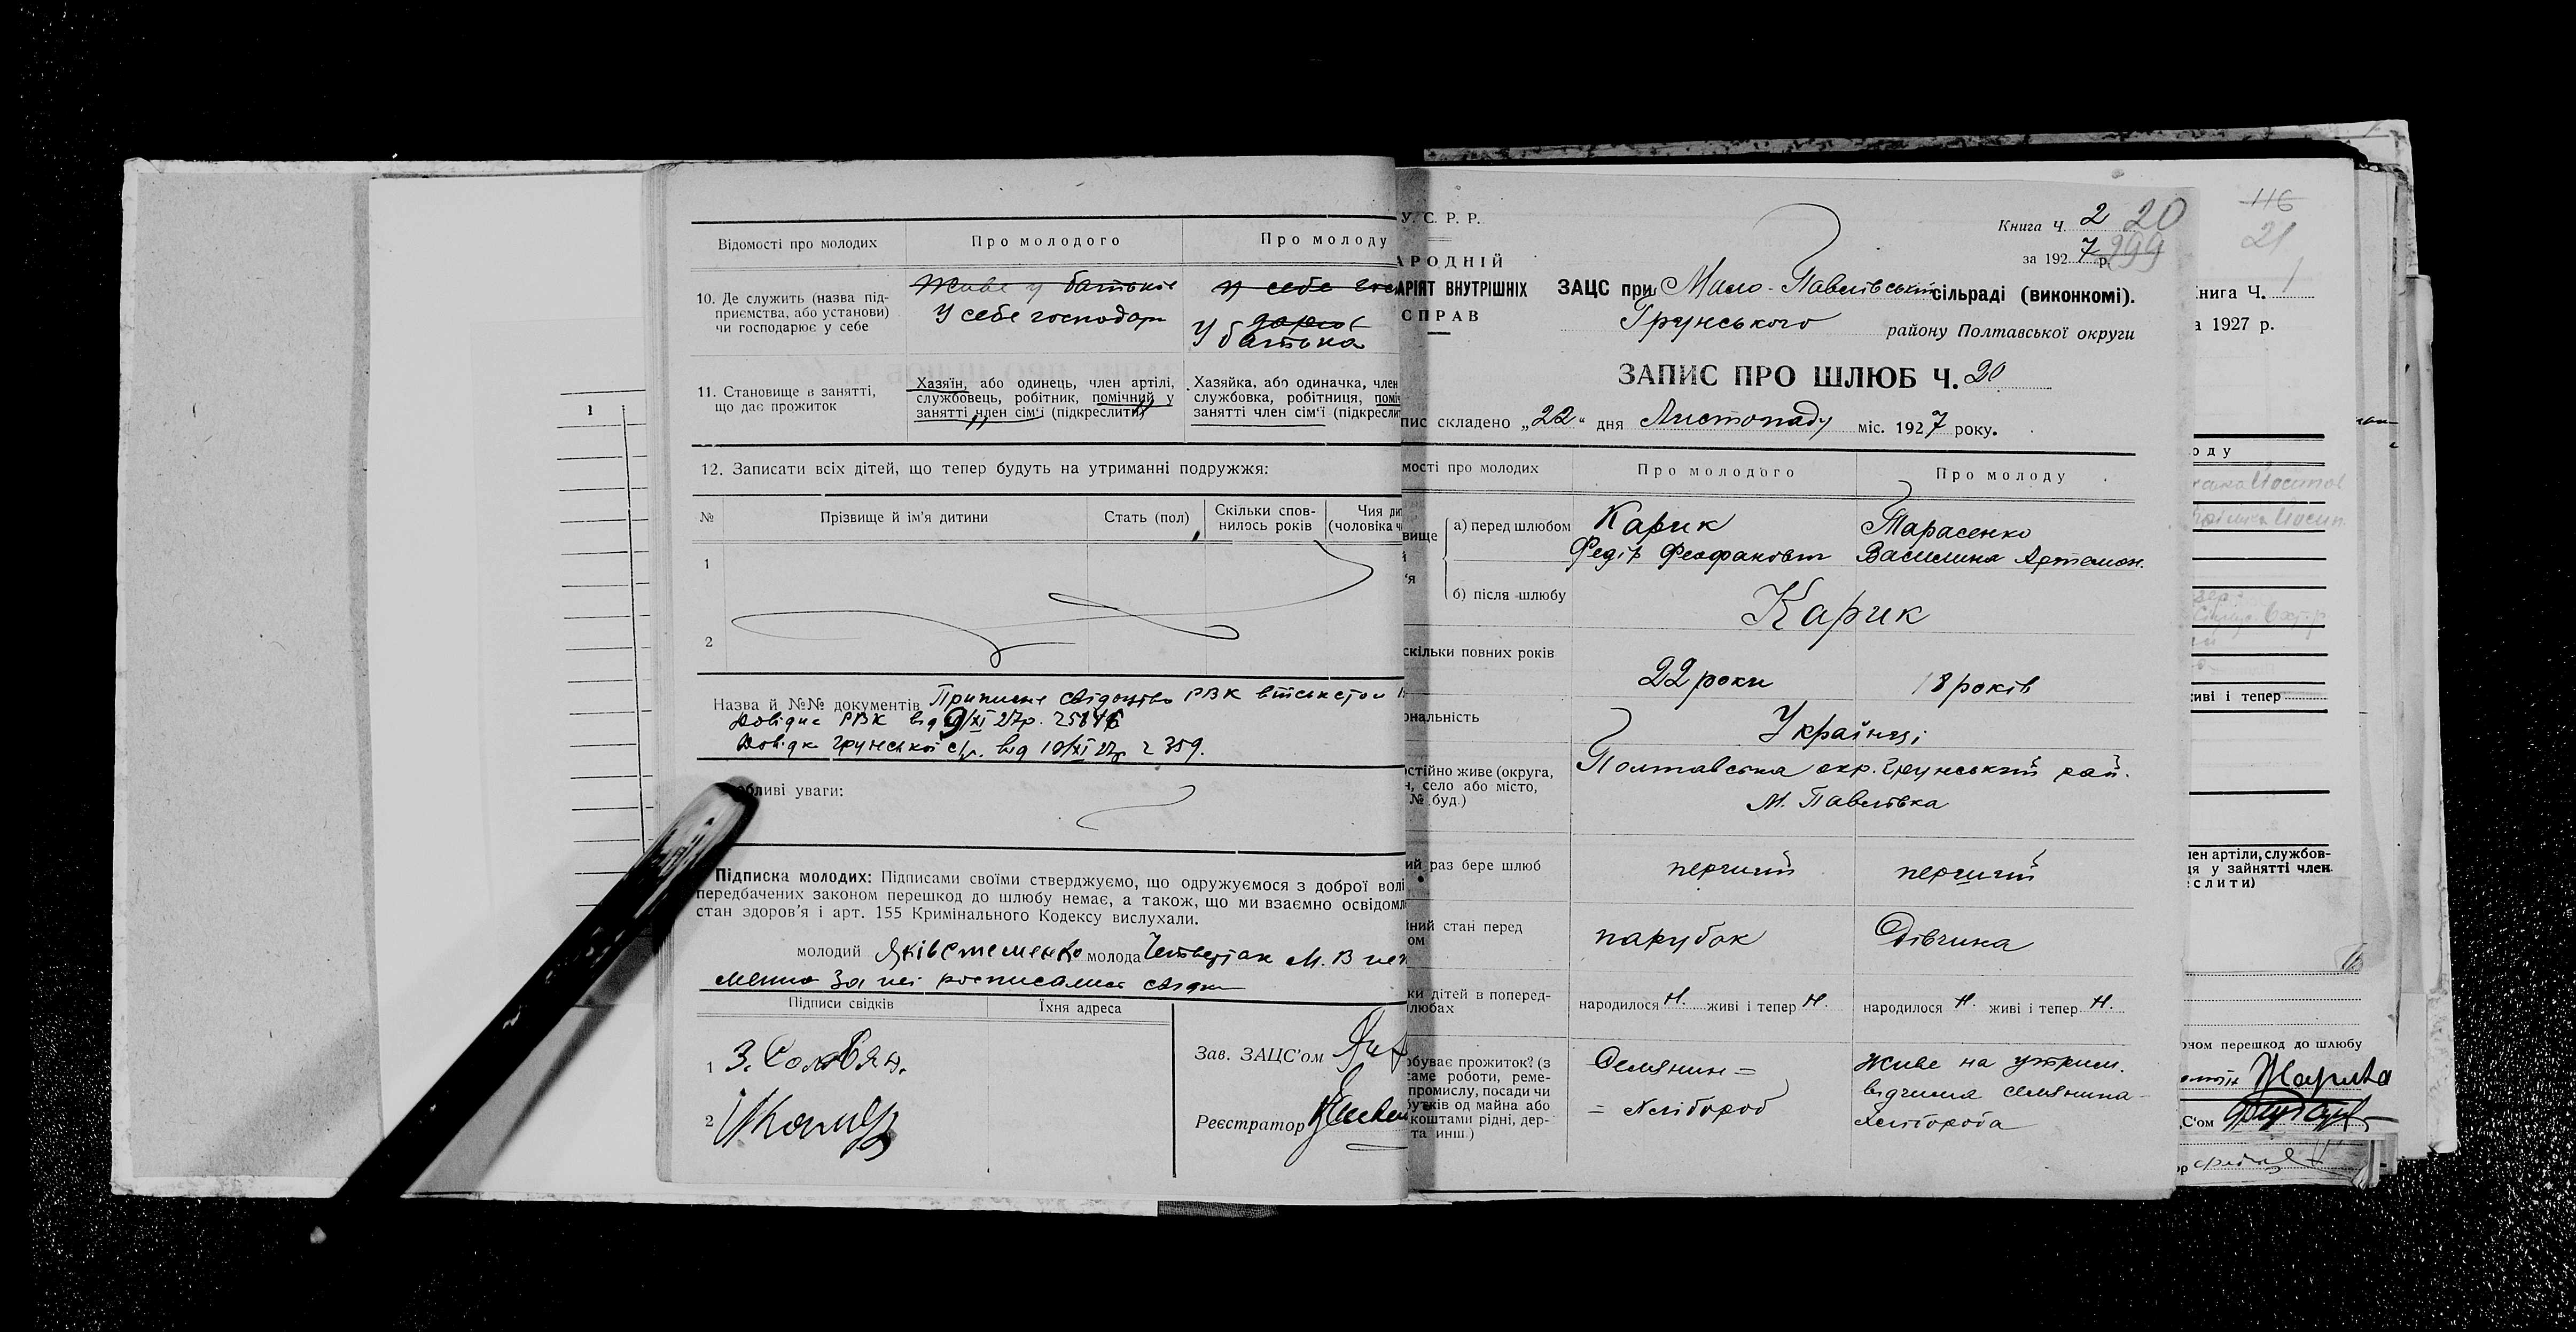 Відомості про молодих
Про молодого
Про молоду
10. Де служить (назва під-
приємства, або установи)
чи господарює у себе
Живе у батьків
У себе господар
у себе
У батька
11. Становище в занятті,
що дає прожиток
Хазяїн, або одинець, член артілі,
службовець, робітник, помічний у
занятті член сім'ї (підкреслити)
Хазяйка, або одиначка, член
службовка, робітниця, поміч
занятті член сім'ї (підкресли
12. Записати всіх дітей, що тепер будуть на утриманні подружжя:
№
Прізвище й ім'я дитини
Стать (пол)
Скільки спов-
нилось років
Чия ди
(чоловіка ч
1
2
Назва й №№ документів Приписне свідоцтво РВК
Довідка РВК від 9/XI 27р.
Довідка Грунської с/р. від 10/XI 27р 359.
бливі уваги:
Підписка молодих: Підписами своїми стверджуємо, що одружуємося з доброї волі
передбачених законом перешкод до шлюбу немає, а також, що ми взаємно освідомл
стан здоров'я і арт. 155 Кримінального Кодексу вислухали.
молодий Яків Стеменко молода Четвертак М. В
за неї росписались свідки
Підписи свідків
Їхня адреса
1
2
Зав. ЗАЦС'ом
Реєстратор
У. С. Р. Р.
АРОДНІЙ
АРІЯТ ВНУТРІШНІХ
СПРАВ
Книга Ч. 2 20
за 1927 р. 299
ЗАЦС при Мало-Павлівській сільраді (виконкомі).
Грунського району Полтавської округи
ЗАПИС ПРО ШЛЮБ Ч. 20
пис складено „22“ дня Листопаду міс. 1927 року.
мості про молодих
Про молодого
Про молоду
вище
й
'я
а) перед шлюбом
Карик
Федір Феофанович
Тарасенко
Василина Артемон.
б) після шлюбу
Карик
скільки повних років
22 роки
18 років
ональність
Українці
остійно живе (округа,
н, село або місто,
№ буд.)
Полтавська окр. Грунський рай.
М. Павлівка
ий раз бере шлюб
перший
перший
йний стан перед
ом
парубок
Дівчина
ки дітей в поперед-
любах
народилося Н. живі і тепер Н.
народилося Н. живі і тепер Н.
обуває прожиток? (з
саме роботи, реме-
промислу, посади чи
бутків од майна або
коштами рідні, дер-
та инш.)
Селянин =
= хлібороб
Живе на утрим.
вітчима селянина-
хлібороба
116
21
Книга Ч. 1
а 1927 р.
оду
живі і тепер
лен артіли, службов-
ця у зайнятті член
еслити)
оном перешкод до шлюбу
С'ом